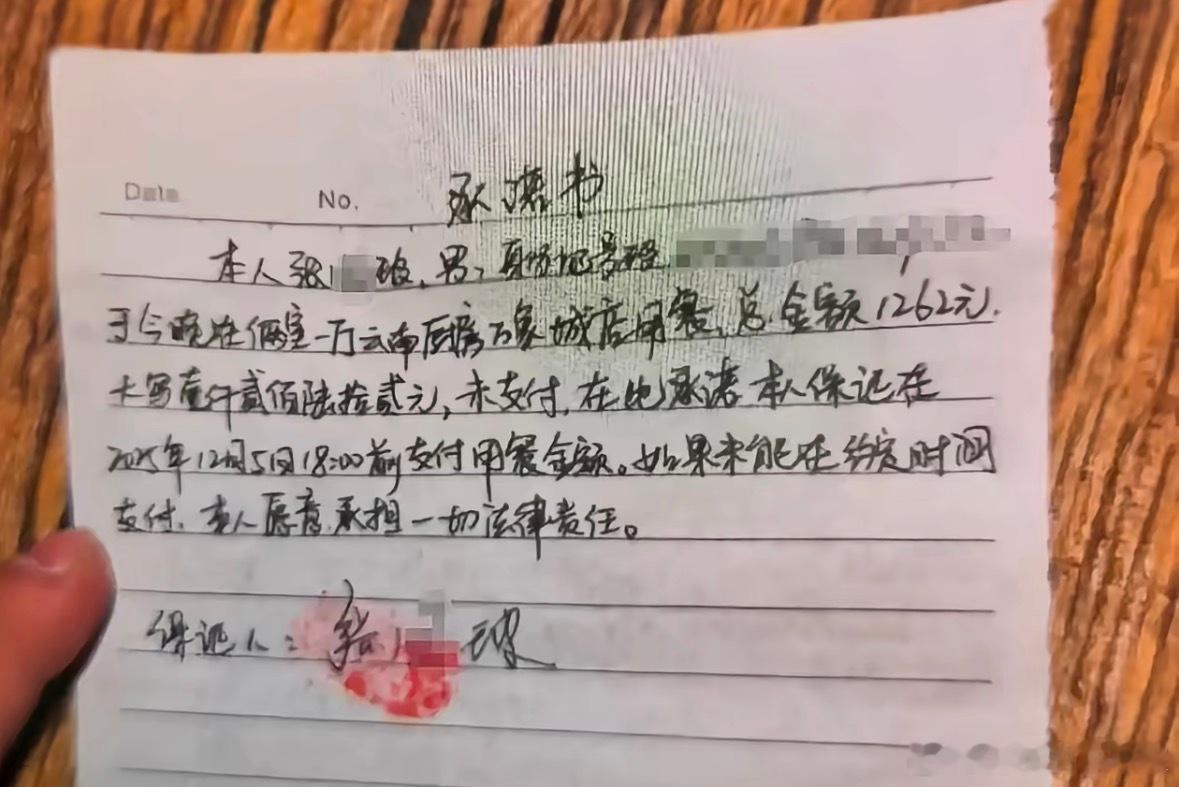 Date No. 承诺书
本人 玻,男,身份证号码
于今晚在一万云南厨房万象城店用餐,总金额1262元.
大写壹仟贰佰陆拾贰元,未支付,在此承诺本人保证在
2025年12月5日18:00前支付用餐金额。如果未能在约定时间
支付,本人愿意承担一切法律责任。
保证人: 玻